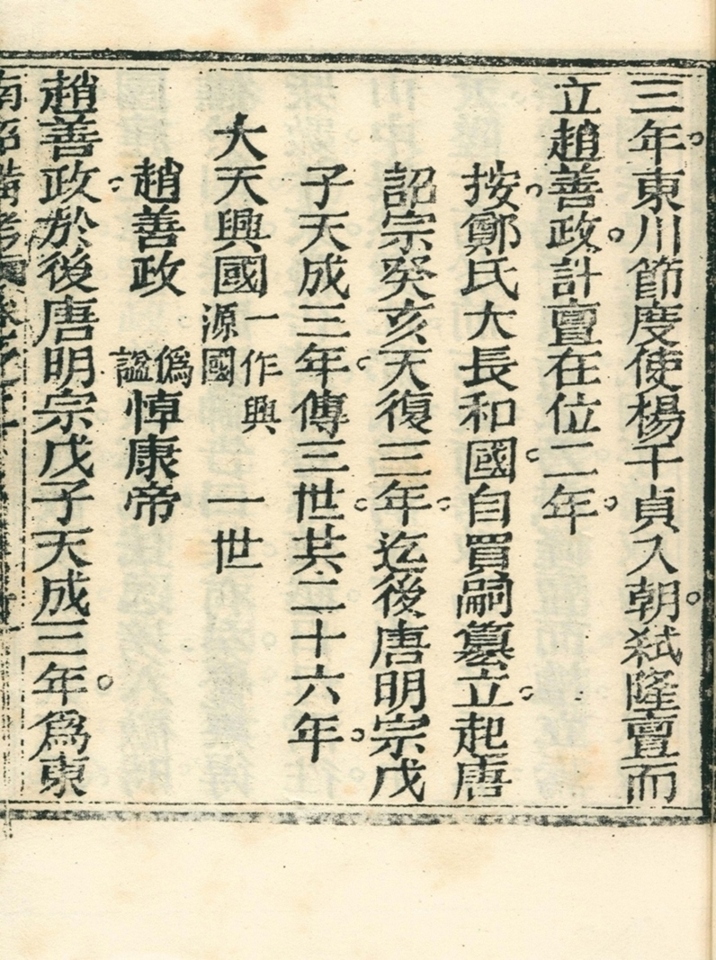 三年。東川節度使楊干貞入朝。弒隆亶而
立趙善政。計亶在位二年。
按。鄭氏大長和國。自買嗣篡立。起唐
詔宗癸亥天復三年。迄後唐明宗戊
子天成三年。傳三世。共二十六年。
大天興國 一作興源國 一世
趙善政 僞謚悼康帝
趙善政。於後唐明宗戊子天成三年。爲東